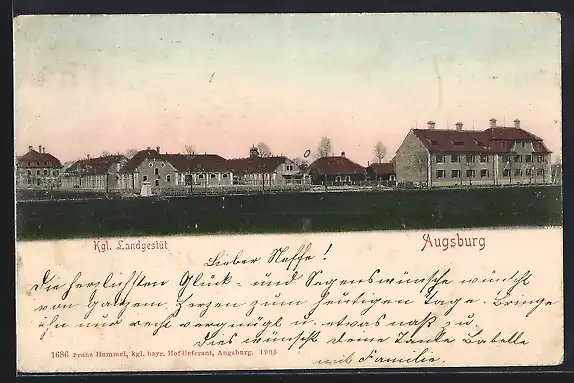 Kgl. Landgestüt
Augsburg
Lieber Neffe!
Die herzlichsten Glück- und Segenswünsche wünscht
von ganzem Herzen zum heutigen Tage. Bringe
ihn nur recht vergnügt u. etwas naß zu.
Dies wünscht deine Tante Babette
mit Familie.
1686 Franz Hummel, kgl. bayr. Hoflieferant, Augsburg. 1903